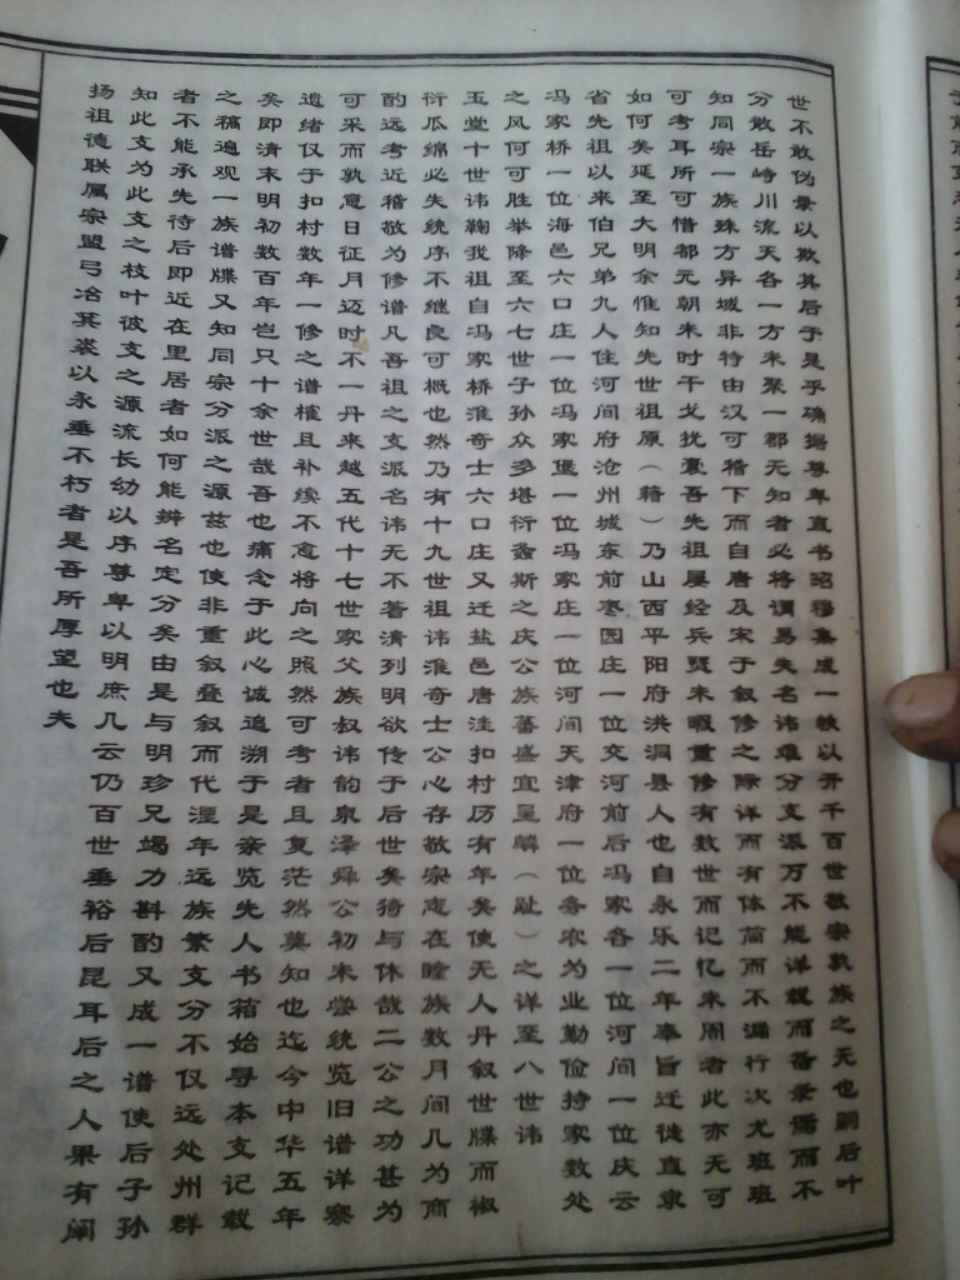 世不敢伪录以欺其后于是乎确据尊卑直书昭穆集成一帙以开千百世敬宗敦族之无也嗣后叶
分散岳峙川流天各一方来聚一郡无知者必将谓易失名讳难分支派万不能详载而备录谱而不
知同宗一族殊方异域非特由汉可稽下而自唐及宋于叙修之际详而有体简而不漏行次尤班班
可考耳所可惜都元朝末时干戈扰襄吾先祖屡经兵燹未暇重修有数世而记忆未周者此亦无可
如何矣延至大明余惟知先世祖原（籍）乃山西平阳府洪洞县人也自永乐二年奉旨迁徙直隶
省先祖以来伯兄弟九人住河间府沧州城东前枣园庄一位交河前后冯家各一位河间一位庆云
冯家桥一位海邑六口庄一位冯家堡一位冯家庄一位河间天津府一位务农为业勤俭持家数处
之风何可胜举降至六七世子孙众多堪衍螽斯之庆公族蕃盛宜呈麟（趾）之详至八世讳
玉堂十世讳鞠我祖自冯家桥淮奇士六口庄又迁盐邑唐洼扣村历有年矣使无人丹叙世牒而椒
衍瓜绵必失统序不继良可概也然乃有十九世祖讳淮奇士公心存敬宗志在睦族数月间几为商
酌远考近稽敬为修谱凡吾祖之支派名讳无不著清列明欲传于后世矣猗与休哉二公之功甚为
可采而孰意日征月迈时不一丹来越五代十七世家父族叔讳韵泉泽舜公初未尝统览旧谱详察
遗绪仅于扣村数年一修之谱权且补续不愈将向之照然可考者且复茫然莫知也迄今中华五年
矣即清末明初数百年岂只十余世哉吾也痛念于此心诚追溯于是亲览先人书箱始寻本支记载
之稿遍观一族谱牒又知同宗分派之源兹也使非重叙叠叙而代湮年远族繁支分不仅远处州群
者不能承先待后即近在里居者如何能辨名定分矣由是与明珍兄竭力斟酌又成一谱使后子孙
知此支为此支之枝叶彼支之源流长幼以序尊卑以明庶几云仍百世垂裕后昆耳后之人果有阐
扬祖德联属宗盟弓冶箕裘以永垂不朽者是吾所厚望也夫